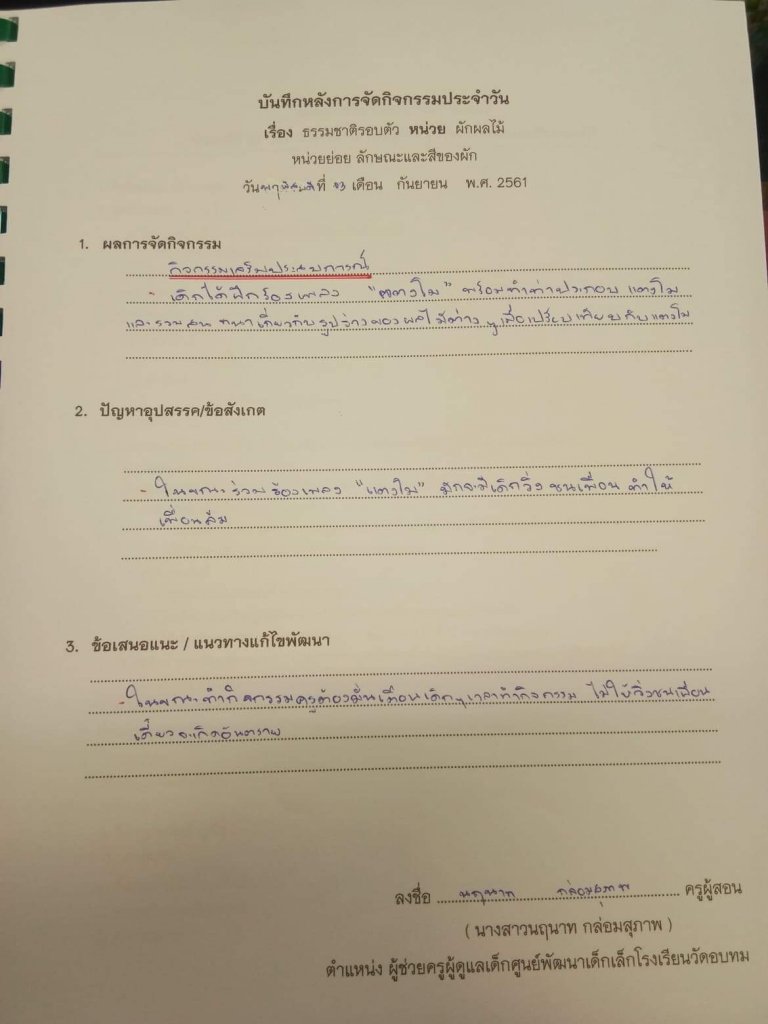 บันทึกหลังการจัดกิจกรรมประจำวัน
เรื่อง ธรรมชาติรอบตัว หน่วย ผักผลไม้
หน่วยย่อย ลักษณะและสีของผัก
วันพฤหัสบดีที่ 13 เดือน กันยายน พ.ศ. 2561
1. ผลการจัดกิจกรรม
กิจกรรมเสริมประสบการณ์
- เด็กได้ฝึกร้องเพลง "แตงโม" พร้อมทำท่าประกอบ แตงโม
และร่วมสนทนาเกี่ยวกับรูปร่างของผลไม้ต่างๆ เพื่อเปรียบเทียบกับแตงโม
2. ปัญหาอุปสรรค/ข้อสังเกต
- ในขณะร่วมร้องเพลง "แตงโม" มักจะมีเด็กวิ่งชนเพื่อน ทำให้
เพื่อนล้ม
3. ข้อเสนอแนะ / แนวทางแก้ไขพัฒนา
- ในขณะทำกิจกรรมครูต้องหมั่นเตือนเด็กๆ เวลาทำกิจกรรม ไม่ให้วิ่งชนเพื่อน
เดี๋ยวจะเกิดอันตราย
ลงชื่อ นฤนาท กล่อมสุภาพ ครูผู้สอน
( นางสาวนฤนาท กล่อมสุภาพ )
ตำแหน่ง ผู้ช่วยครูผู้ดูแลเด็กศูนย์พัฒนาเด็กเล็กโรงเรียนวัดอบทม